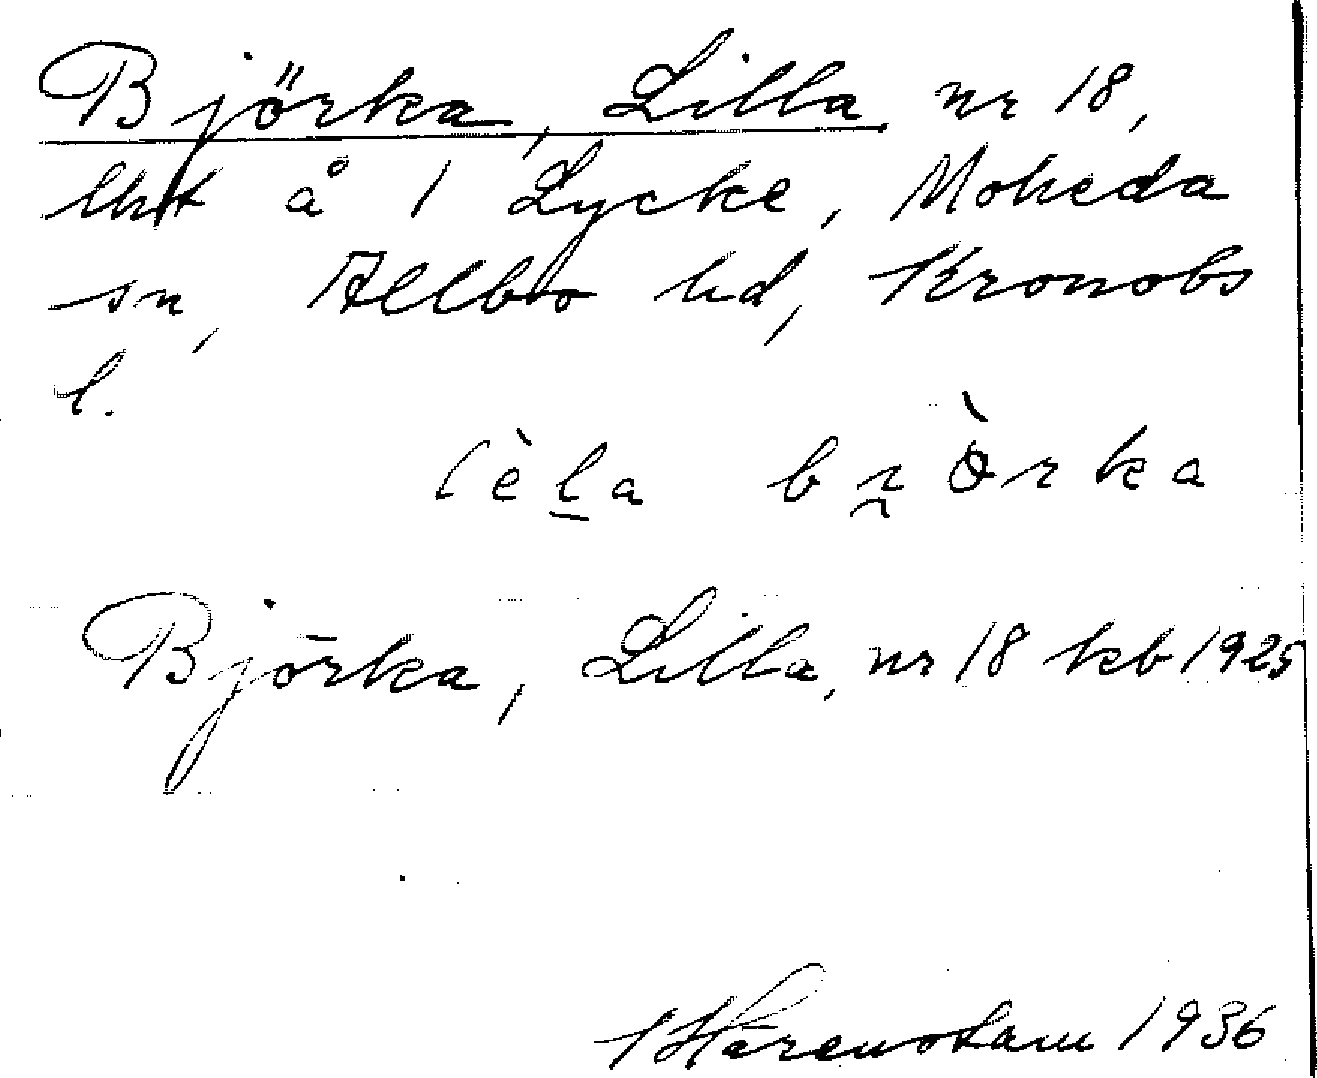 Björka, Lilla nr 18,
lht å 1 Lycke, Moheda
sn, Allbo hd, Kronobs
l.
lèl̲a bɪ̯òrka
Björka, Lilla, nr 18 kb 1925
Härenstam 1936